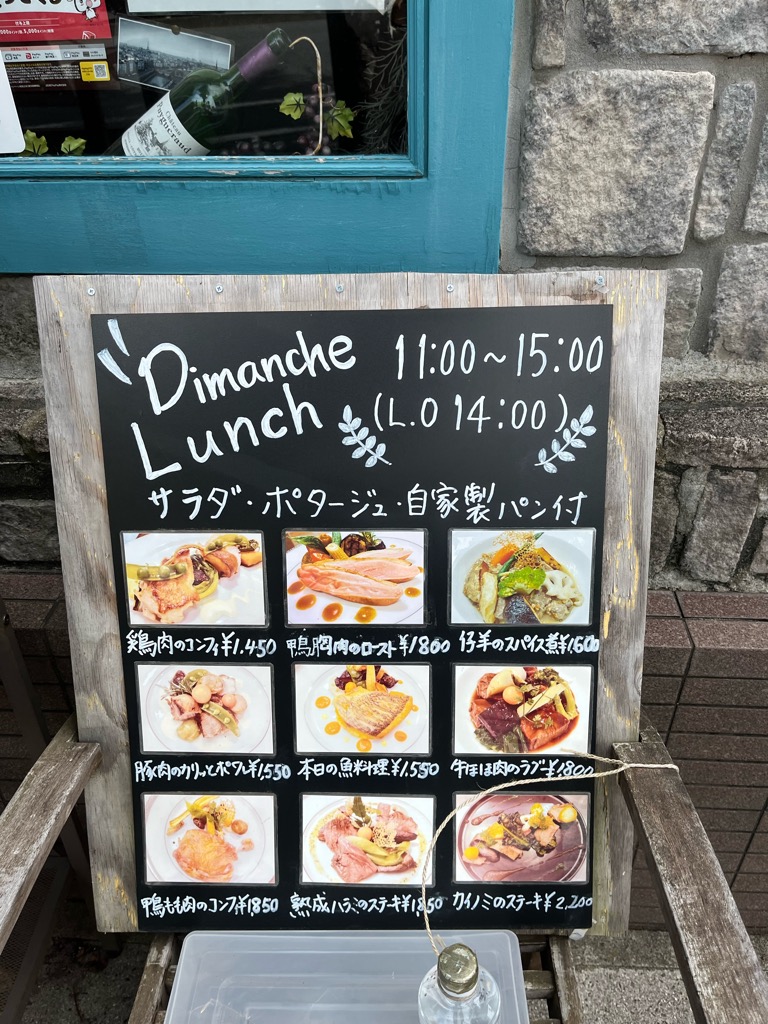 Château
Puygueraud
Dimanche 11:00~15:00
Lunch (L.O 14:00)
サラダ・ポタージュ・自家製パン付
鶏肉のコンフィ¥1.450 鴨胸肉のロースト¥1800 仔羊のスパイス煮¥1,500
豚肉のカリッとポワレ¥1,550 本日の魚料理¥1.550 牛ほほ肉のラグー¥1800
鴨もも肉のコンフィ¥1850 熟成ハラミのステーキ¥1,850 カイノミのステーキ¥2,200